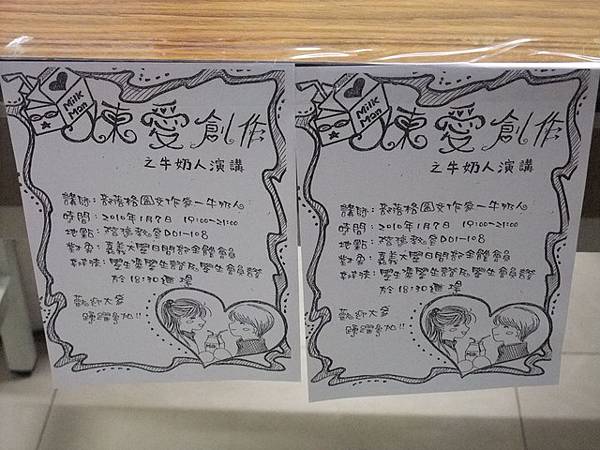 Milk Man
愛創作
之牛奶人演講
講師：部落格圖文作家-牛奶人
時間：2010年1月7日 19:00~21:00
地點：階梯教室D01-108
對象：嘉義大學日間部全體會員
辦法：學生憑學生證及學生會員證
於18:30進場
歡迎大家
踴躍參加!!
Milk Man
愛創作
之牛奶人演講
講師：部落格圖文作家-牛奶人
時間：2010年1月7日 19:00~21:00
地點：階梯教室D01-108
對象：嘉義大學日間部全體會員
辦法：學生憑學生證及學生會員證
於18:30進場
歡迎大家
踴躍參加!!